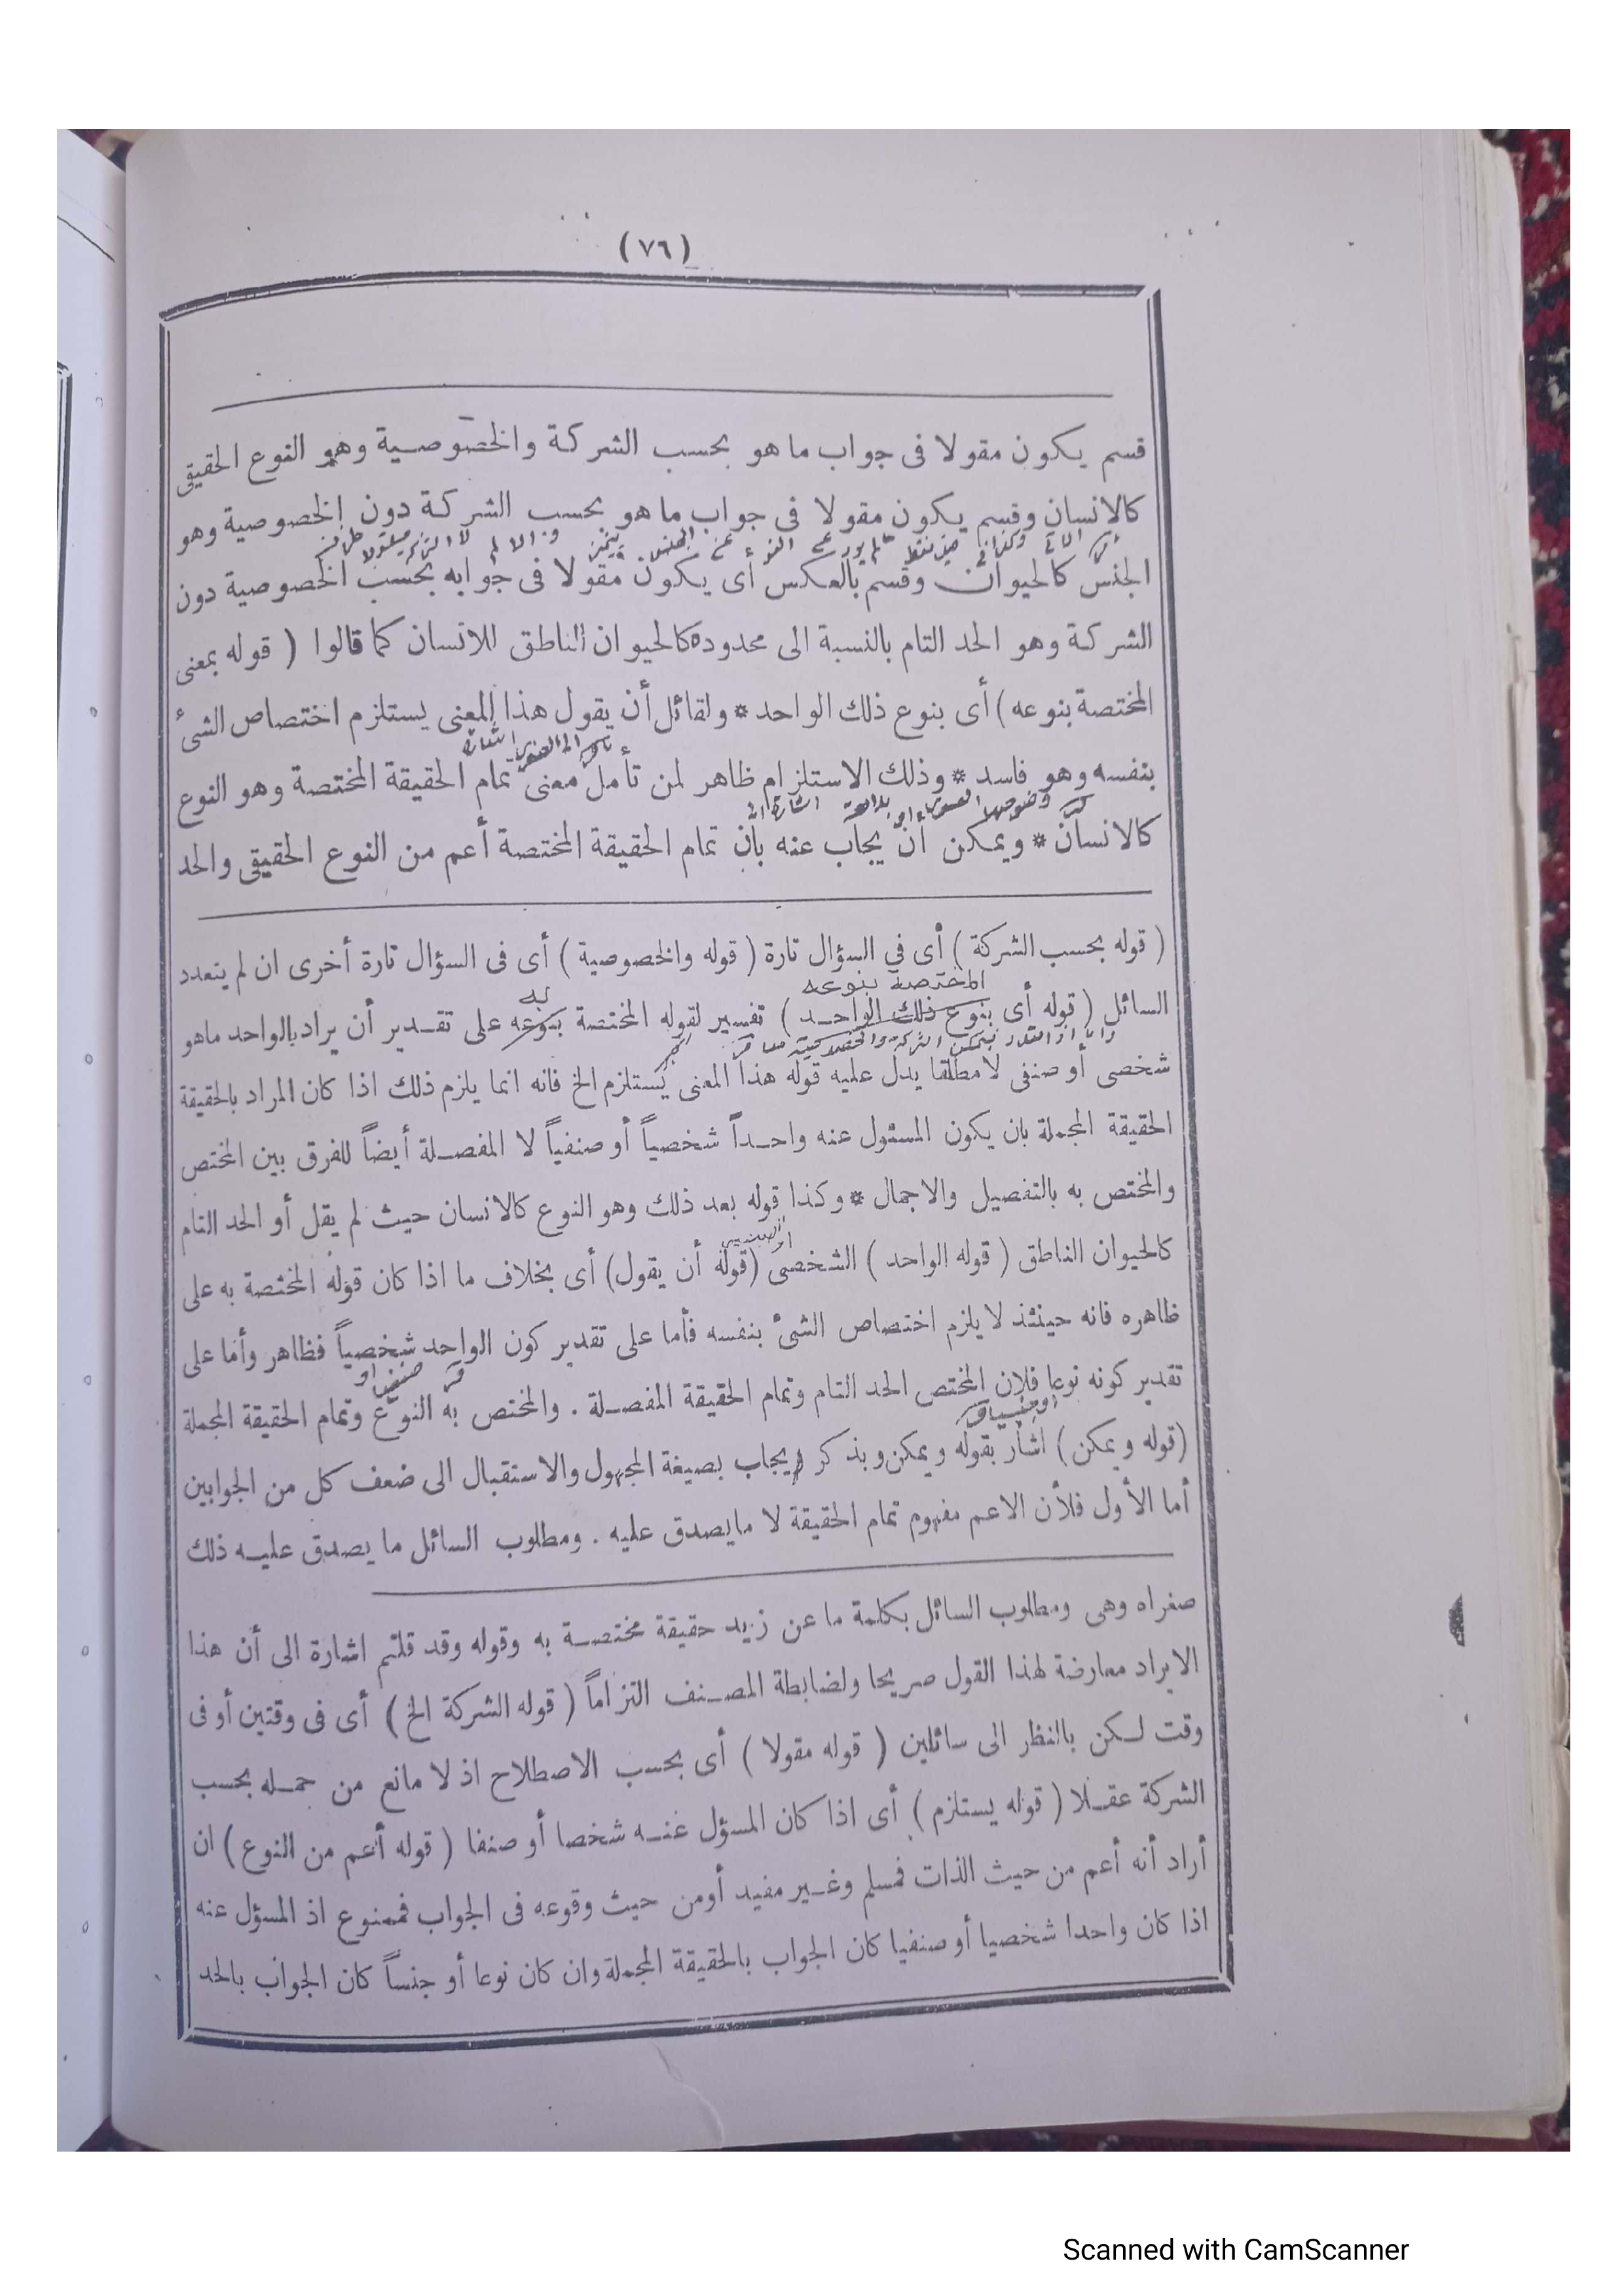 (٧٦)
قسم يكون مقولا فى جواب ما هو بحسب الشركة والخصوصية وهو النوع الحقيقى
كالانسان وقسم يكون مقولا فى جواب ما هو بحسب الشركة دون الخصوصية وهو
الجنس كالحيوان وقسم بالعكس أى يكون مقولا فى جوابه بحسب الخصوصية دون
الشركة وهو الحد التام بالنسبة الى محدوده كالحيوان الناطق للانسان كما قالوا ( قوله بمعنى
المختصة بنوعه ) أى بنوع ذلك الواحد * ولقائل أن يقول هذا المعنى يستلزم اختصاص الشئ
بنفسه وهو فاسد * وذلك الاستلزام ظاهر لمن تأمل معنى تمام الحقيقة المختصة وهو النوع
كالانسان * ويمكن أن يجاب عنه بان تمام الحقيقة المختصة أعم من النوع الحقيقى والحد
( قوله بحسب الشركة ) أى فى السؤال تارة ( قوله والخصوصية ) أى فى السؤال تارة أخرى ان لم يتعدد
المختصة بنوعه
به
السائل ( قوله أى بنوع ذلك الواحد ) تفسير لقوله المختصة بنوعه على تقدير أن يراد بالواحد ماهو
شخصى أو صنفى لا مطلقا يدل عليه قوله هذا المعنى يستلزم الخ فانه انما يلزم ذلك اذا كان المراد بالحقيقة
الحقيقة المجملة بان يكون المسئول عنه واحداً شخصياً أو صنفياً لا المفصلة أيضاً للفرق بين المختص
والمختص به بالتفصيل والاجمال * وكذا قوله بعد ذلك وهو النوع كالانسان حيث لم يقل أو الحد التام
كالحيوان الناطق ( قوله الواحد ) الشخصى ( قوله أن يقول ) أى بخلاف ما اذا كان قوله المختصة به على
ظاهره فانه حينئذ لا يلزم اختصاص الشئ بنفسه فأما على تقدير كون الواحد شخصياً فظاهر وأما على
تقدير كونه نوعا فلان المختص الحد التام وتمام الحقيقة المفصلة . والمختص به النوع وتمام الحقيقة المجملة
( قوله ويمكن ) اشار بقوله ويمكن وبذكر ويجاب بصيغة المجهول والاستقبال الى ضعف كل من الجوابين
أما الأول فلأن الاعم مفهوم تمام الحقيقة لا مايصدق عليه . ومطلوب السائل ما يصدق عليه ذلك
صغراه وهى ومطلوب السائل بكلمة ما عن زيد حقيقة مختصة به وقوله وقد قلتم اشارة الى أن هذا
الايراد معارضة لهذا القول صريحا ولضابطة المصنف التزاماً ( قوله الشركة الخ ) أى فى وقتين أو فى
وقت لكن بالنظر الى سائلين ( قوله مقولا ) أى بحسب الاصطلاح اذ لا مانع من حمله بحسب
الشركة عقلا ( قوله يستلزم ) أى اذا كان المسؤل عنه شخصا أو صنفا ( قوله أعم من النوع ) ان
أراد أنه أعم من حيث الذات فمسلم وغير مفيد أو من حيث وقوعه فى الجواب فممنوع اذ المسؤل عنه
اذا كان واحدا شخصيا أو صنفيا كان الجواب بالحقيقة المجملة وان كان نوعا أو جنساً كان الجواب بالحد
Scanned with CamScanner